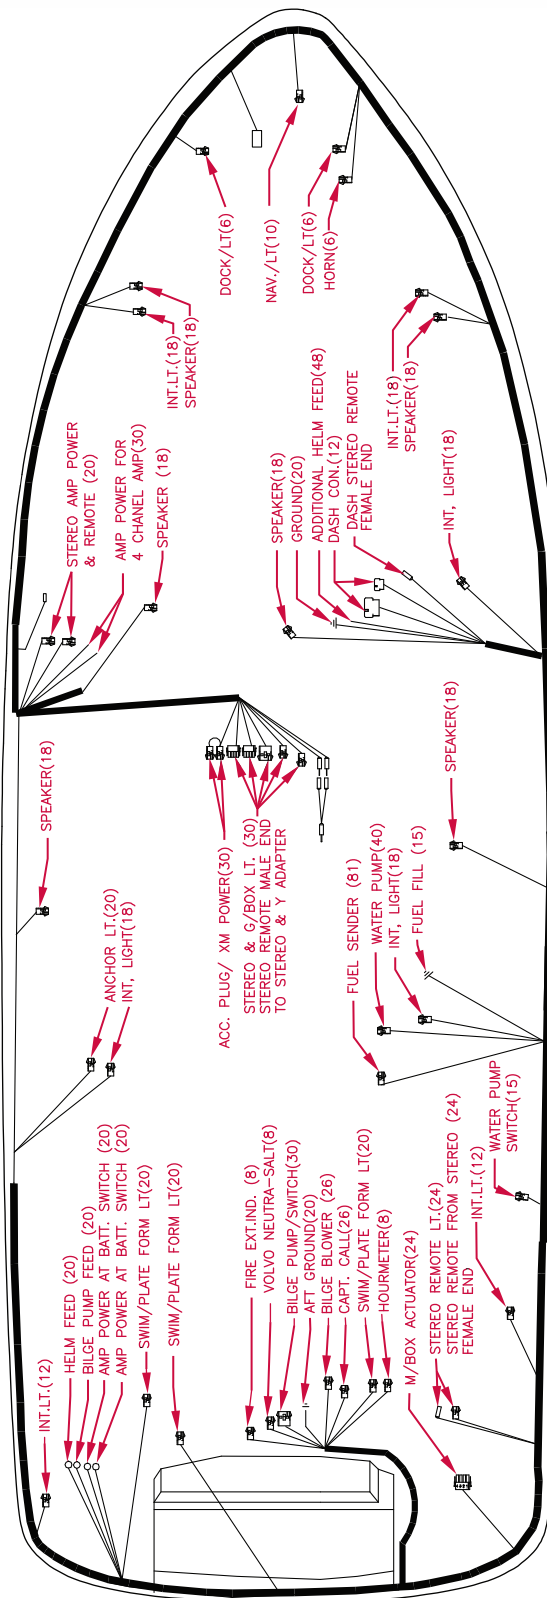 DOCK/LT(6)
NAV./LT(10)
DOCK/LT(6)
HORN(6)
INT.LT.(18)
SPEAKER(18)
INT.LT.(18)
SPEAKER(18)
STEREO AMP POWER
& REMOTE (20)
AMP POWER FOR
4 CHANEL AMP(30)
SPEAKER (18)
SPEAKER(18)
GROUND(20)
ADDITIONAL HELM FEED(48)
DASH CON.(12)
DASH STEREO REMOTE
FEMALE END
INT, LIGHT(18)
SPEAKER(18)
ACC. PLUG/ XM POWER(30)
STEREO & G/BOX LT. (30)
STEREO REMOTE MALE END
TO STEREO & Y ADAPTER
SPEAKER(18)
ANCHOR LT.(20)
INT, LIGHT(18)
FUEL SENDER (81)
WATER PUMP(40)
INT, LIGHT(18)
FUEL FILL (15)
WATER PUMP
SWITCH(15)
INT.LT.(12)
HELM FEED (20)
BILGE PUMP FEED (20)
AMP POWER AT BATT. SWITCH (20)
AMP POWER AT BATT. SWITCH (20)
SWIM/PLATE FORM LT(20)
SWIM/PLATE FORM LT(20)
FIRE EXT.IND. (8)
VOLVO NEUTRA-SALT(8)
BILGE PUMP/SWITCH(30)
AFT GROUND(20)
BILGE BLOWER (26)
CAPT. CALL(26)
SWIM/PLATE FORM LT(20)
HOURMETER(8)
M/BOX ACTUATOR(24)
STEREO REMOTE LT.(24)
STEREO REMOTE FROM STEREO (24)
FEMALE END
INT.LT.(12)